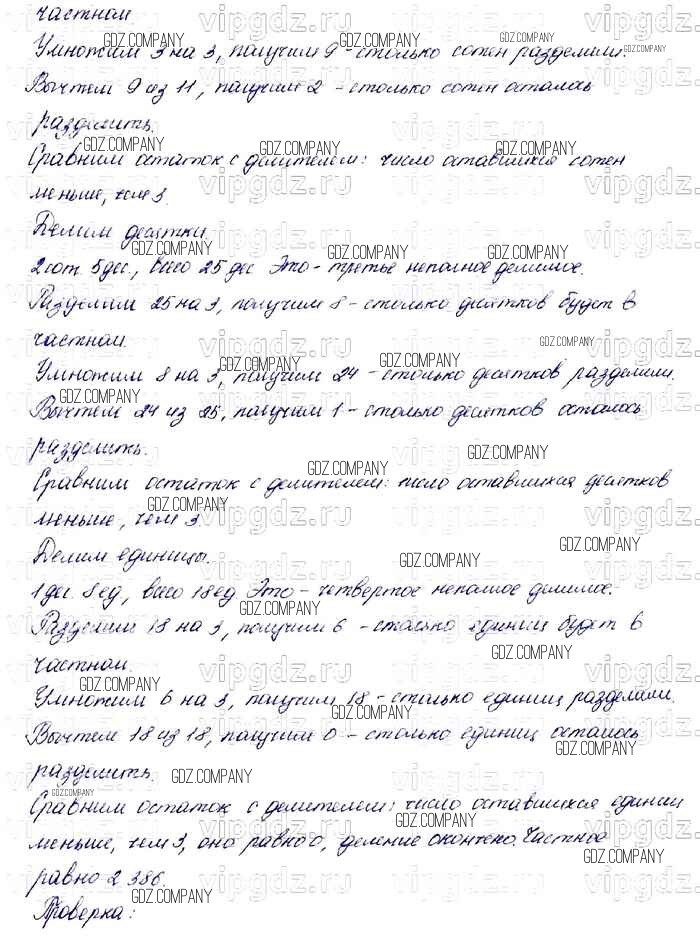 частном.
Умножим 3 на 3, получим 9 - столько сотен разделили.
Вычтем 9 из 11, получим 2 - столько сотен осталось
разделить.
Сравним остаток с делителем: число оставшихся сотен
меньше, чем 3.
Делим десятки.
2 сот. 5 дес., всего 25 дес Это - третье неполное делимое.
Разделим 25 на 3, получим 8 - столько десятков будет в
частном.
Умножим 8 на 3, получим 24 - столько десятков разделили.
Вычтем 24 из 25, получим 1 - столько десятков осталось
разделить.
Сравним остаток с делителем: число оставшихся десятков
меньше, чем 3.
Делим единицы.
1 дес. 8 ед, всего 18 ед Это - четвертое неполное делимое.
Разделим 18 на 3, получим 6 - столько единиц будет в
частном.
Умножим 6 на 3, получим 18 - столько единиц разделили.
Вычтем 18 из 18, получим 0 - столько единиц осталось
разделить.
Сравним остаток с делителем: число оставшихся единиц
меньше, чем 3, оно равно 0, деление окончено. Частное
равно 2 386.
Проверка:
vipgdz.ru
GDZ.COMPANY